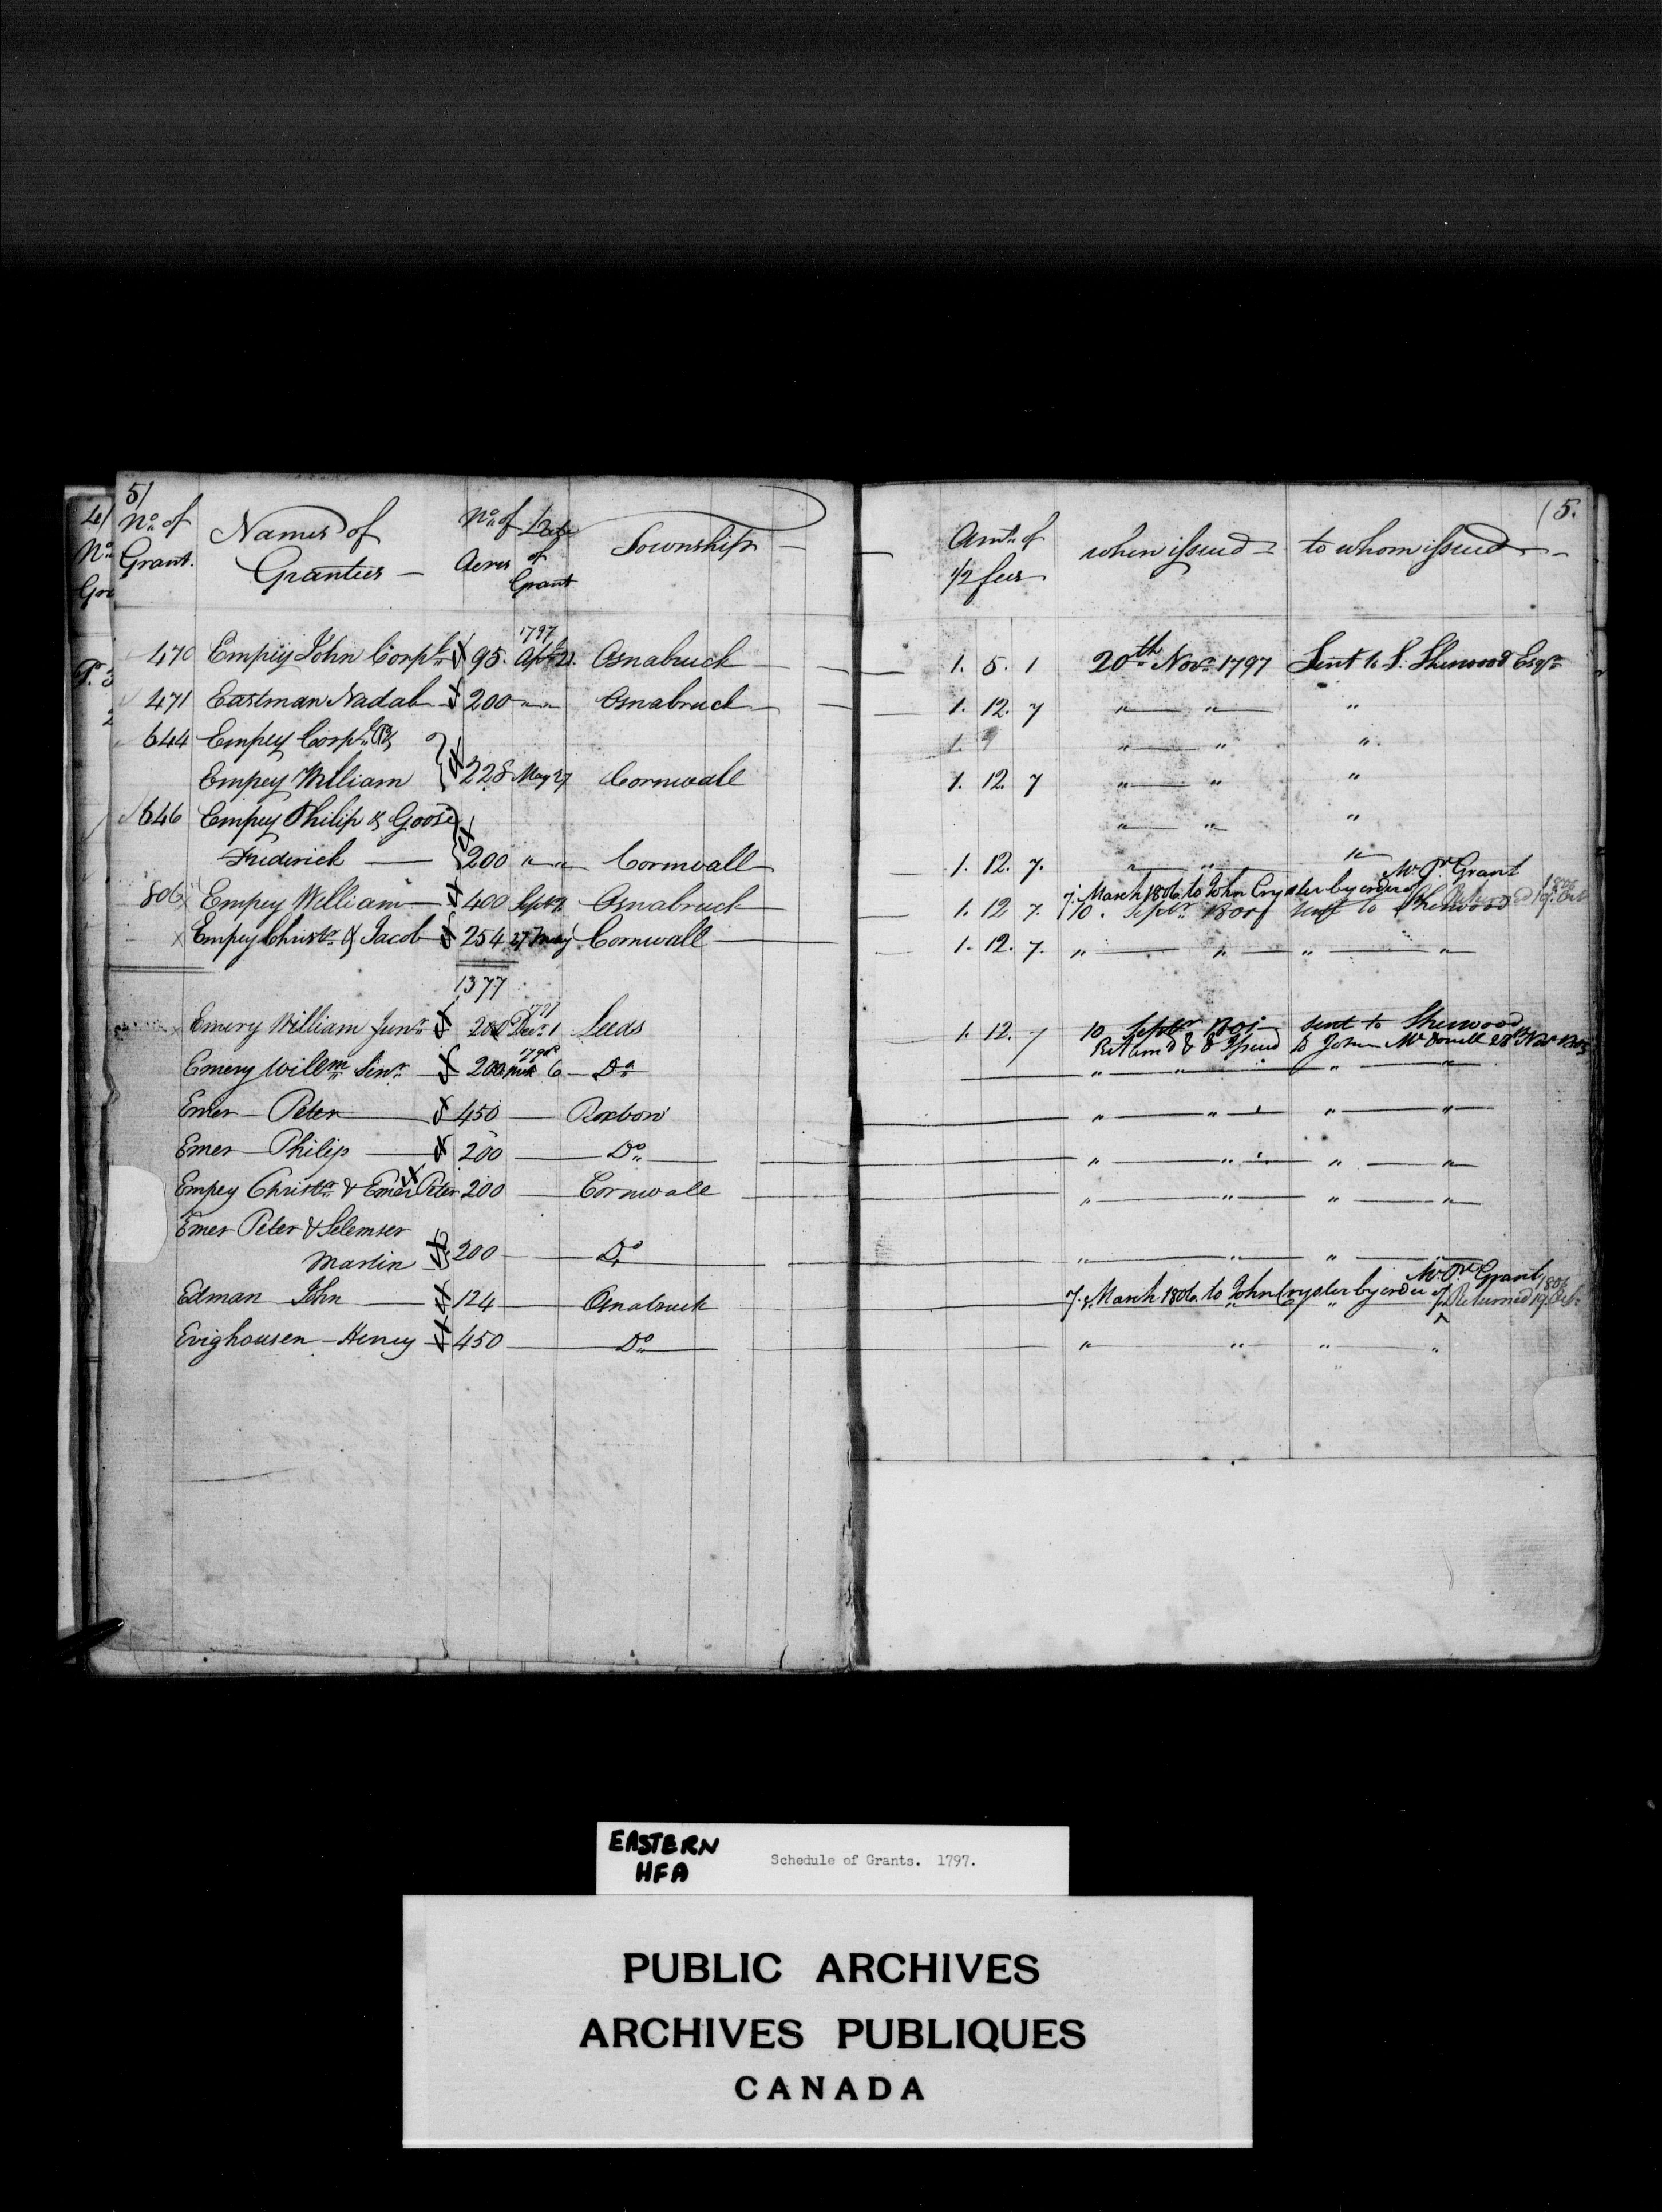 5/
No. of Grant. Names of Grantees No. of Acres Date of Grant Township Amt. of 1/2 fees when issued to whom issued (5.
1797
470 Empey John Corpl. 95. Apl. 21. Osnabruck 1. 5. 1 20th Novr. 1797 Sent to S. Sherwood Esqr.
471 Eastman Nadab 200 " " Osnabruck 1. 12. 7 " " "
644 Empey Corpl. & 1. 9 " " "
Empey William 228 May 27 Cornwall 1. 12. 7 " " "
646 Empey Philip & Goose " " "
Frederick 200 " " Cornwall 1. 12. 7. " " "
Mr. Grant
7. March 1806 to John Cryster by order of Returned 19. Oct 1806
806 Empey William 400 Sept. Osnabruck 1. 12 7. 10. Septr. 1801 sent to Sherwood
Empey Christr. & Jacob 254 27 May Cornwall 1. 12. 7. " " " "
1377
Emery William Junr. 200 Decr. 1 Leeds 1. 12. 7 10 Septr. 1801 sent to Sherwood
Return'd & Issued to John McDonell 28 Novr.
Emery Willm. Senr. 200 6 Do. " " " "
Emer Peter 450 Roxboro' " " " "
Emer Philip 200 Do. " " " "
Empey Christr. & Emer Peter 200 Cornwall " " " "
Emer Peter & Selemser
Martin 200 Do. " " " "
Mr. Grant
Edman John 124 Osnabruck 7. March 1806. to John Cryster by order of Returned 19. Oct. 1806
Evighousen Henry 450 Do. " " " "
EASTERN
HFA
Schedule of Grants. 1797.
PUBLIC ARCHIVES
ARCHIVES PUBLIQUES
CANADA